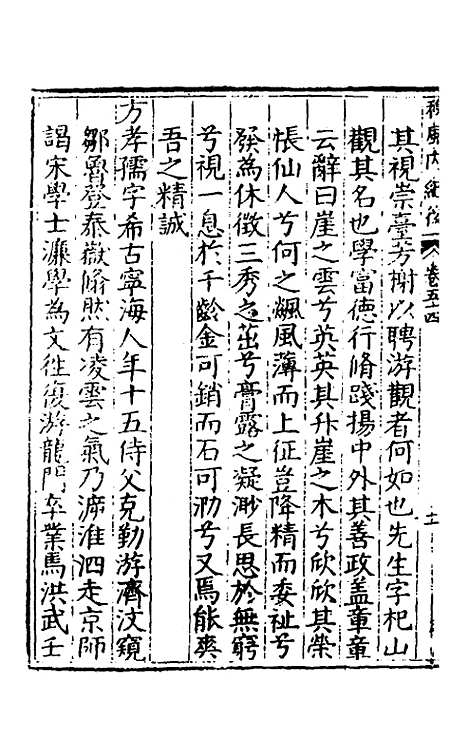 其視崇臺芳榭以聘游觀者何如也先生字杞山
觀其名也學富德行脩踐揚中外其善政盖童童
云辭曰崖之雲兮英英其升崖之木兮欣欣其榮
悵仙人兮何之飆風薄而上征豈降精而委祉兮
發為休徵三秀之茁兮膏露之凝渺長思於無窮
兮視一息於千齡金可銷而石可泐兮又焉能爽
吾之精誠
方孝孺字希古寧海人年十五侍父克勤游濟汶窺
鄒魯登泰嶽脩然有凌雲之氣乃泝淮泗走京師
謁宋學士濂學為文徃復游龍門卒業馬洪武壬
卷五十四